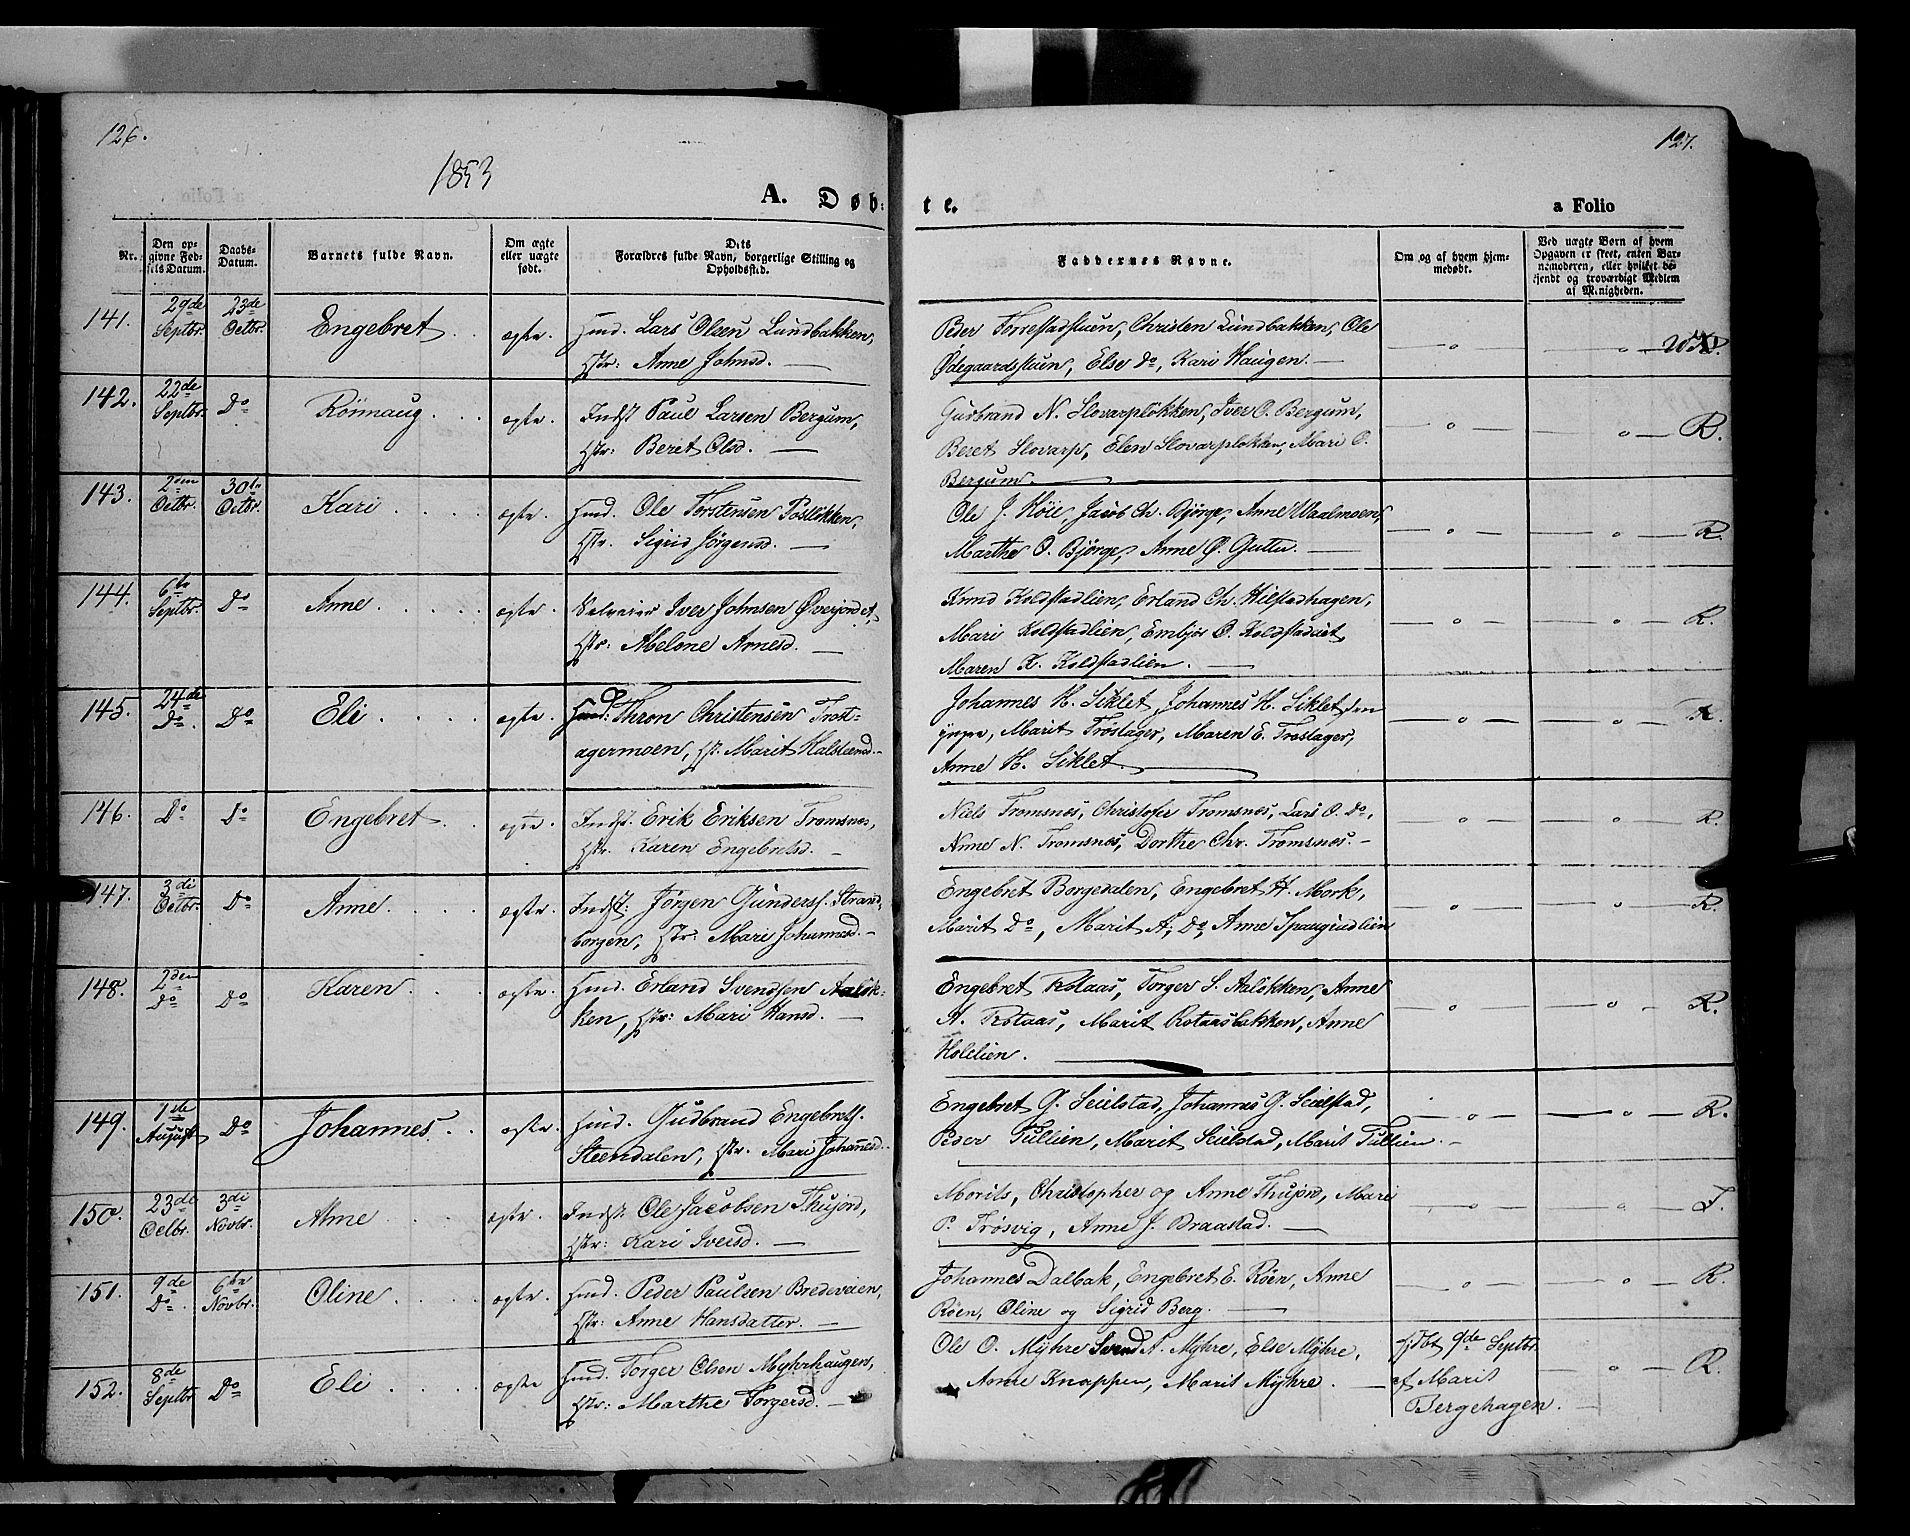 126.
127.
1853
A. Døb-
te.
a Folio
Nr.
Den op-
givne Fød-
sels Datum.
Daabs-
Datum.
Barnets fulde Navn.
Om ægte
eller uægte
født.
Dets
Forældres fulde Navn, borgerlige Stilling og
Opholdssted.
Faddernes Navne.
Om og af hvem hjem-
medøbt.
Ved uægte Børn af hvem
Opgaven er skeet, enten Bar-
nemoderen, eller hvilket be-
kjendt og troværdigt Medlem
af Menigheden.
141. 29de Septbr. 23de Octbr. Engebret ægte. Hmd. Lars Olsen Lundbakken,
Hstr: Anne Johnsd. —
Peder Torrestadstuen, Christen Lundbakken, Ole
Ødegaardstuen, Else Do, Kari Haugen. —
142. 22de Septbr. Do Rönnaug ægte. Indst Paul Larsen Bergum,
Hstr: Beret Olsd. —
Gudbrand N. Slovarplökken, Iver O. Bergum,
Beret Slovarp, Elen Slovarplokken, Mari O.
Bergum. — R.
143. 2den Octbr. 30te Octbr. Kari ægte. Hmd. Ole Torstensen Post­lökken,
Hstr. Sigrid Jörgensd. —
Ole J. Höie, Jacob Ch. Bjørge, Anne Waalmoen,
Marthe O. Bjørge, Anne Ø. Guttu. — R.
144. 6te Septbr. Do Anne ægte. Selveier Iver Johnsen Øverjordet,
Hstr: Abelone Arnesd. —
Knud Koldstadlien, Erland Ch. Hilstadhagen,
Mari Koldstadlien, Embjør O. Koldstadeiet,
Maren K. Koldstadlien. — R.
145. 24de Do. Do Eli ægte. Hmd: Thron Christensen Trost-
agermoen, Hst. Marit Halsteensd. —
Johannes H. Siklet, Johannes H. Siklet den
yngre, Marit Trøstager, Maren E. Trostager,
Anne H. Siklet. — R.
146. Do Do Engebret ægte. Indst. Erik Eriksen Tromsnes,
Hstr. Karen Engebretsd. —
Niels Tromsnes, Christofer Tromsnes, Lars O. Do,
Anne N. Tromsnes, Dorthe Chr. Tromsnes. — R.
147. 3di Octbr. Do Anne ægte. Indst. Jörgen Gunders. Strand-
borgen, Hstr: Mari Johannesd. —
Engebret Borgedalen, Engebret H. Mork,
Marit Do, Marit A. Do, Anne Spangrudlien R.
148. 2den Do Do Karen ægte. Hmd. Erland Svendsen Aalök-
ken, Hstr: Mari Hansd. —
Engebret Rotaas, Torger S. Aalökken, Anne
A. Rotaas, Marit Rotaasbakken, Anne
Holelien. — R.
149. 1ste August Do Johannes ægte. Hmd. Gudbrand Engebrets.
Steendalen, Hstr. Mari Johannesd.
Engebret G. Seielstad, Johannes G. Seielstad,
Peder Tullien, Marit Seielstad, Marit Tullien. — R.
150. 23de Octbr. 3di Novbr. Anne ægte. Indst. Ole Jacobsen Thujord,
Hstr: Kari Iversd. —
Morits, Christopher og Anne Thujord, Mari
P. Trøsvig, Anne J. Braastad. —
151. 9de Do. 6te Novbr. Oline ægte. Hmd. Peder Paulsen Bredeveien,
Hstr: Anne Hansdatter. —
Johannes Dalbak, Engebret E. Röen, Anne
Röen, Oline og Sigrid Berg. — R.
152. 8de Septbr. Do Eli ægte Hmd. Torger Olsen Myhrhaugen,
Hstr: Marthe Torgersd. —
Ole O. Myhre Svend A. Myhre, Else Myhre,
Anne Knappen, Marit Myhre. —
hdbt 9de Septbr.
af Marit
Bergehagen. R.